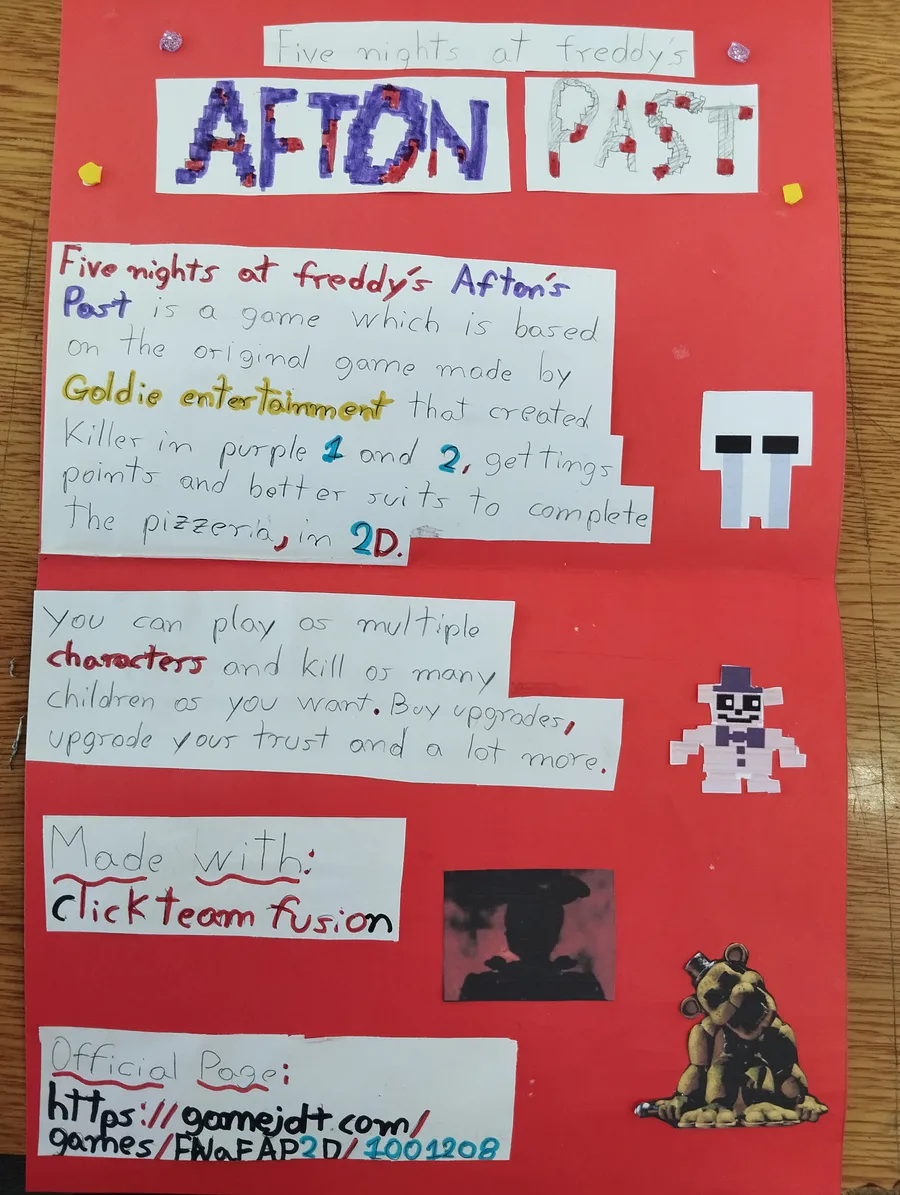 Five nights at freddy's
AFTON PAST
Five nights at freddy's Afton's
Past is a game which is based
on the original game made by
Goldie entertainment that created
Killer in purple 1 and 2, gettings
points and better suits to complete
the pizzeria, in 2D.
You can play as multiple
characters and kill as many
children as you want. Buy upgrades,
upgrade your trust and a lot more.
Made with:
clickteam fusion
Official Page:
https://gamejolt.com/
games/FNaFAP2D/1001208